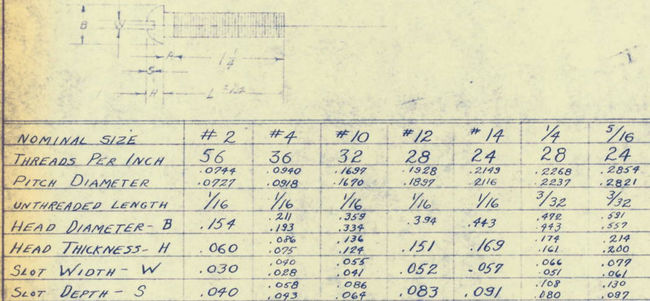 B
W
A
1 1/4
S
H
L
NOMINAL SIZE #2 #4 #10 #12 #14 1/4 5/16
THREADS PER INCH 56 36 32 28 24 28 24
PITCH DIAMETER .0744 .0727 .0940 .0918 .1697 .1670 .1928 .1897 .2149 .2116 .2268 .2237 .2854 .2821
UNTHREADED LENGTH 1/16 1/16 1/16 1/16 1/16 3/32 3/32
HEAD DIAMETER - B .154 .211 .193 .359 .334 .394 .443 .472 .443 .591 .557
HEAD THICKNESS - H .060 .086 .075 .136 .124 .151 .169 .174 .161 .214 .200
SLOT WIDTH - W .030 .040 .028 .055 .041 .052 .057 .066 .051 .077 .061
SLOT DEPTH - S .040 .058 .043 .086 .064 .083 .091 .108 .080 .130 .097